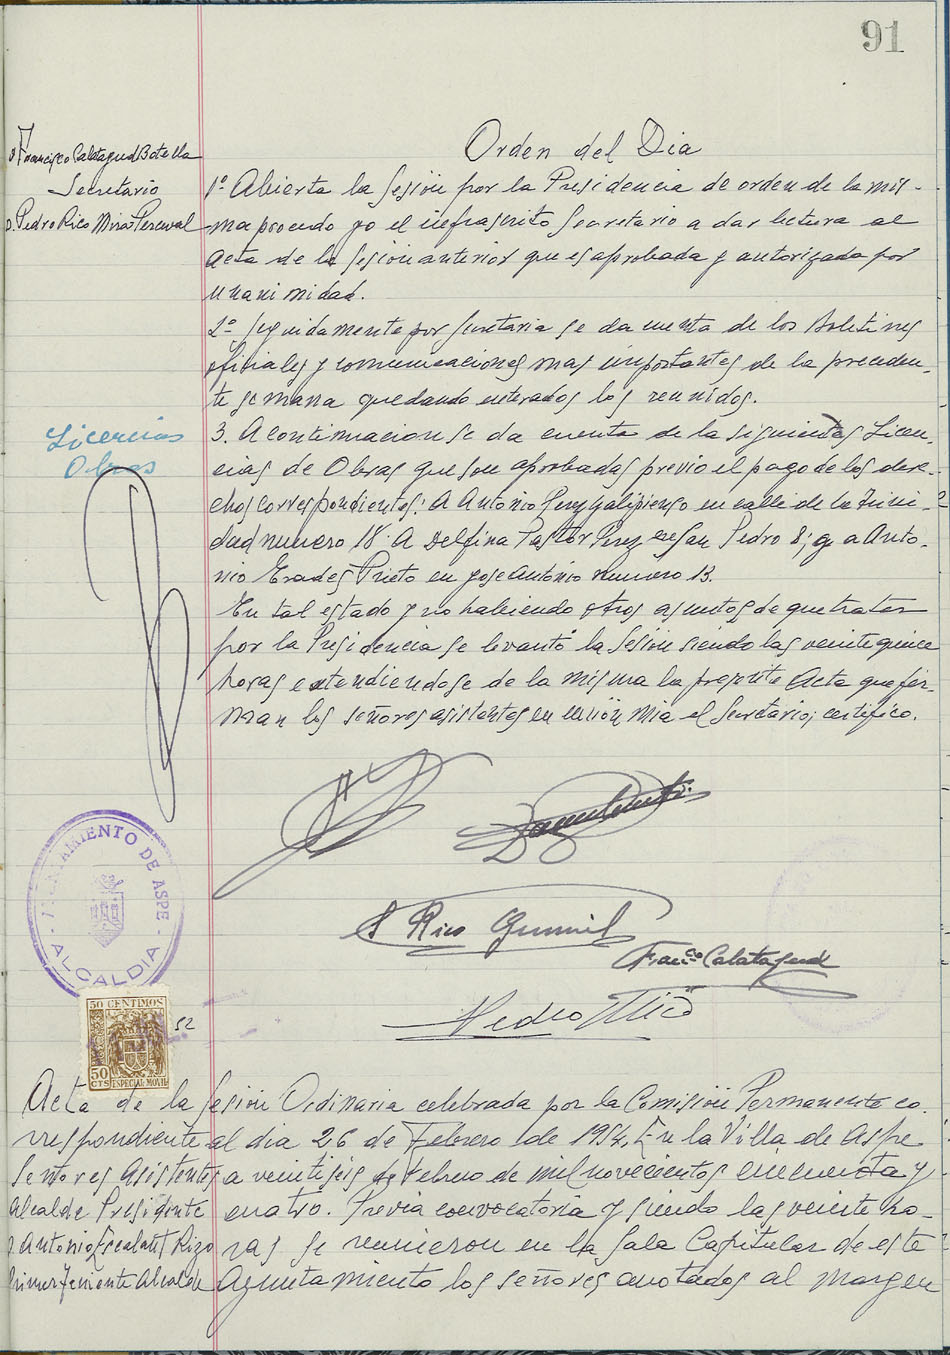 91
D Francisco Calatayud Botella
Secretario
D. Pedro Rico Mira Perceval
Orden del Dia
1º Abierta la Sesión por la Presidencia de orden de la mis-
ma procedo yo el infrascrito Secretario a dar lectura al
acta de la sesion anterior que es aprobada y autorizada por
unanimidad.
2º Seguidamente por Secretaria se da cuenta de los Boletines
oficiales y comunicaciones mas importantes de la preceden-
te semana quedando enterados los reunidos.
Licencias
Obras
3. A continuacion se da cuenta de la siguientes Licen-
cias de Obras que son aprobadas previo el pago de los dere-
chos correspondientes: A Antonio en calle de la Trini-
dad numero 18. A Delfina Pastor Perez en San Pedro 8; y a Anto-
nio Erades Prieto en Jose Antonio numero 13.
En tal estado y no habiendo otros asuntos de que tratar
por la Presidencia se levantó la Sesión siendo las veinte quince
horas extendiendose de la misma la presente Acta que fir-
man los señores asistentes en unión mia el Secretario; certifico.
AYUNTAMIENTO DE ASPE
ALCALDIA
Rico
Franco Calatayud
Pedro Rico
50 CENTIMOS
50
CTS ESPECIAL MOVIL
52
Acta de la Sesión Ordinaria celebrada por la Comisión Permanente co-
rrespondiente al dia 26 de Febrero de 1954. En la Villa de Aspe
Señores Asistentes
a veintiseis de Febrero de mil novecientos cincuenta y
Alcalde Presidente
cuatro. Previa convocatoria y siendo las veinte ho-
D. Antonio Rizo
ras se reunieron en la Sala Capitular de este
Primer Teniente Alcalde
Ayuntamiento los señores anotados al margen